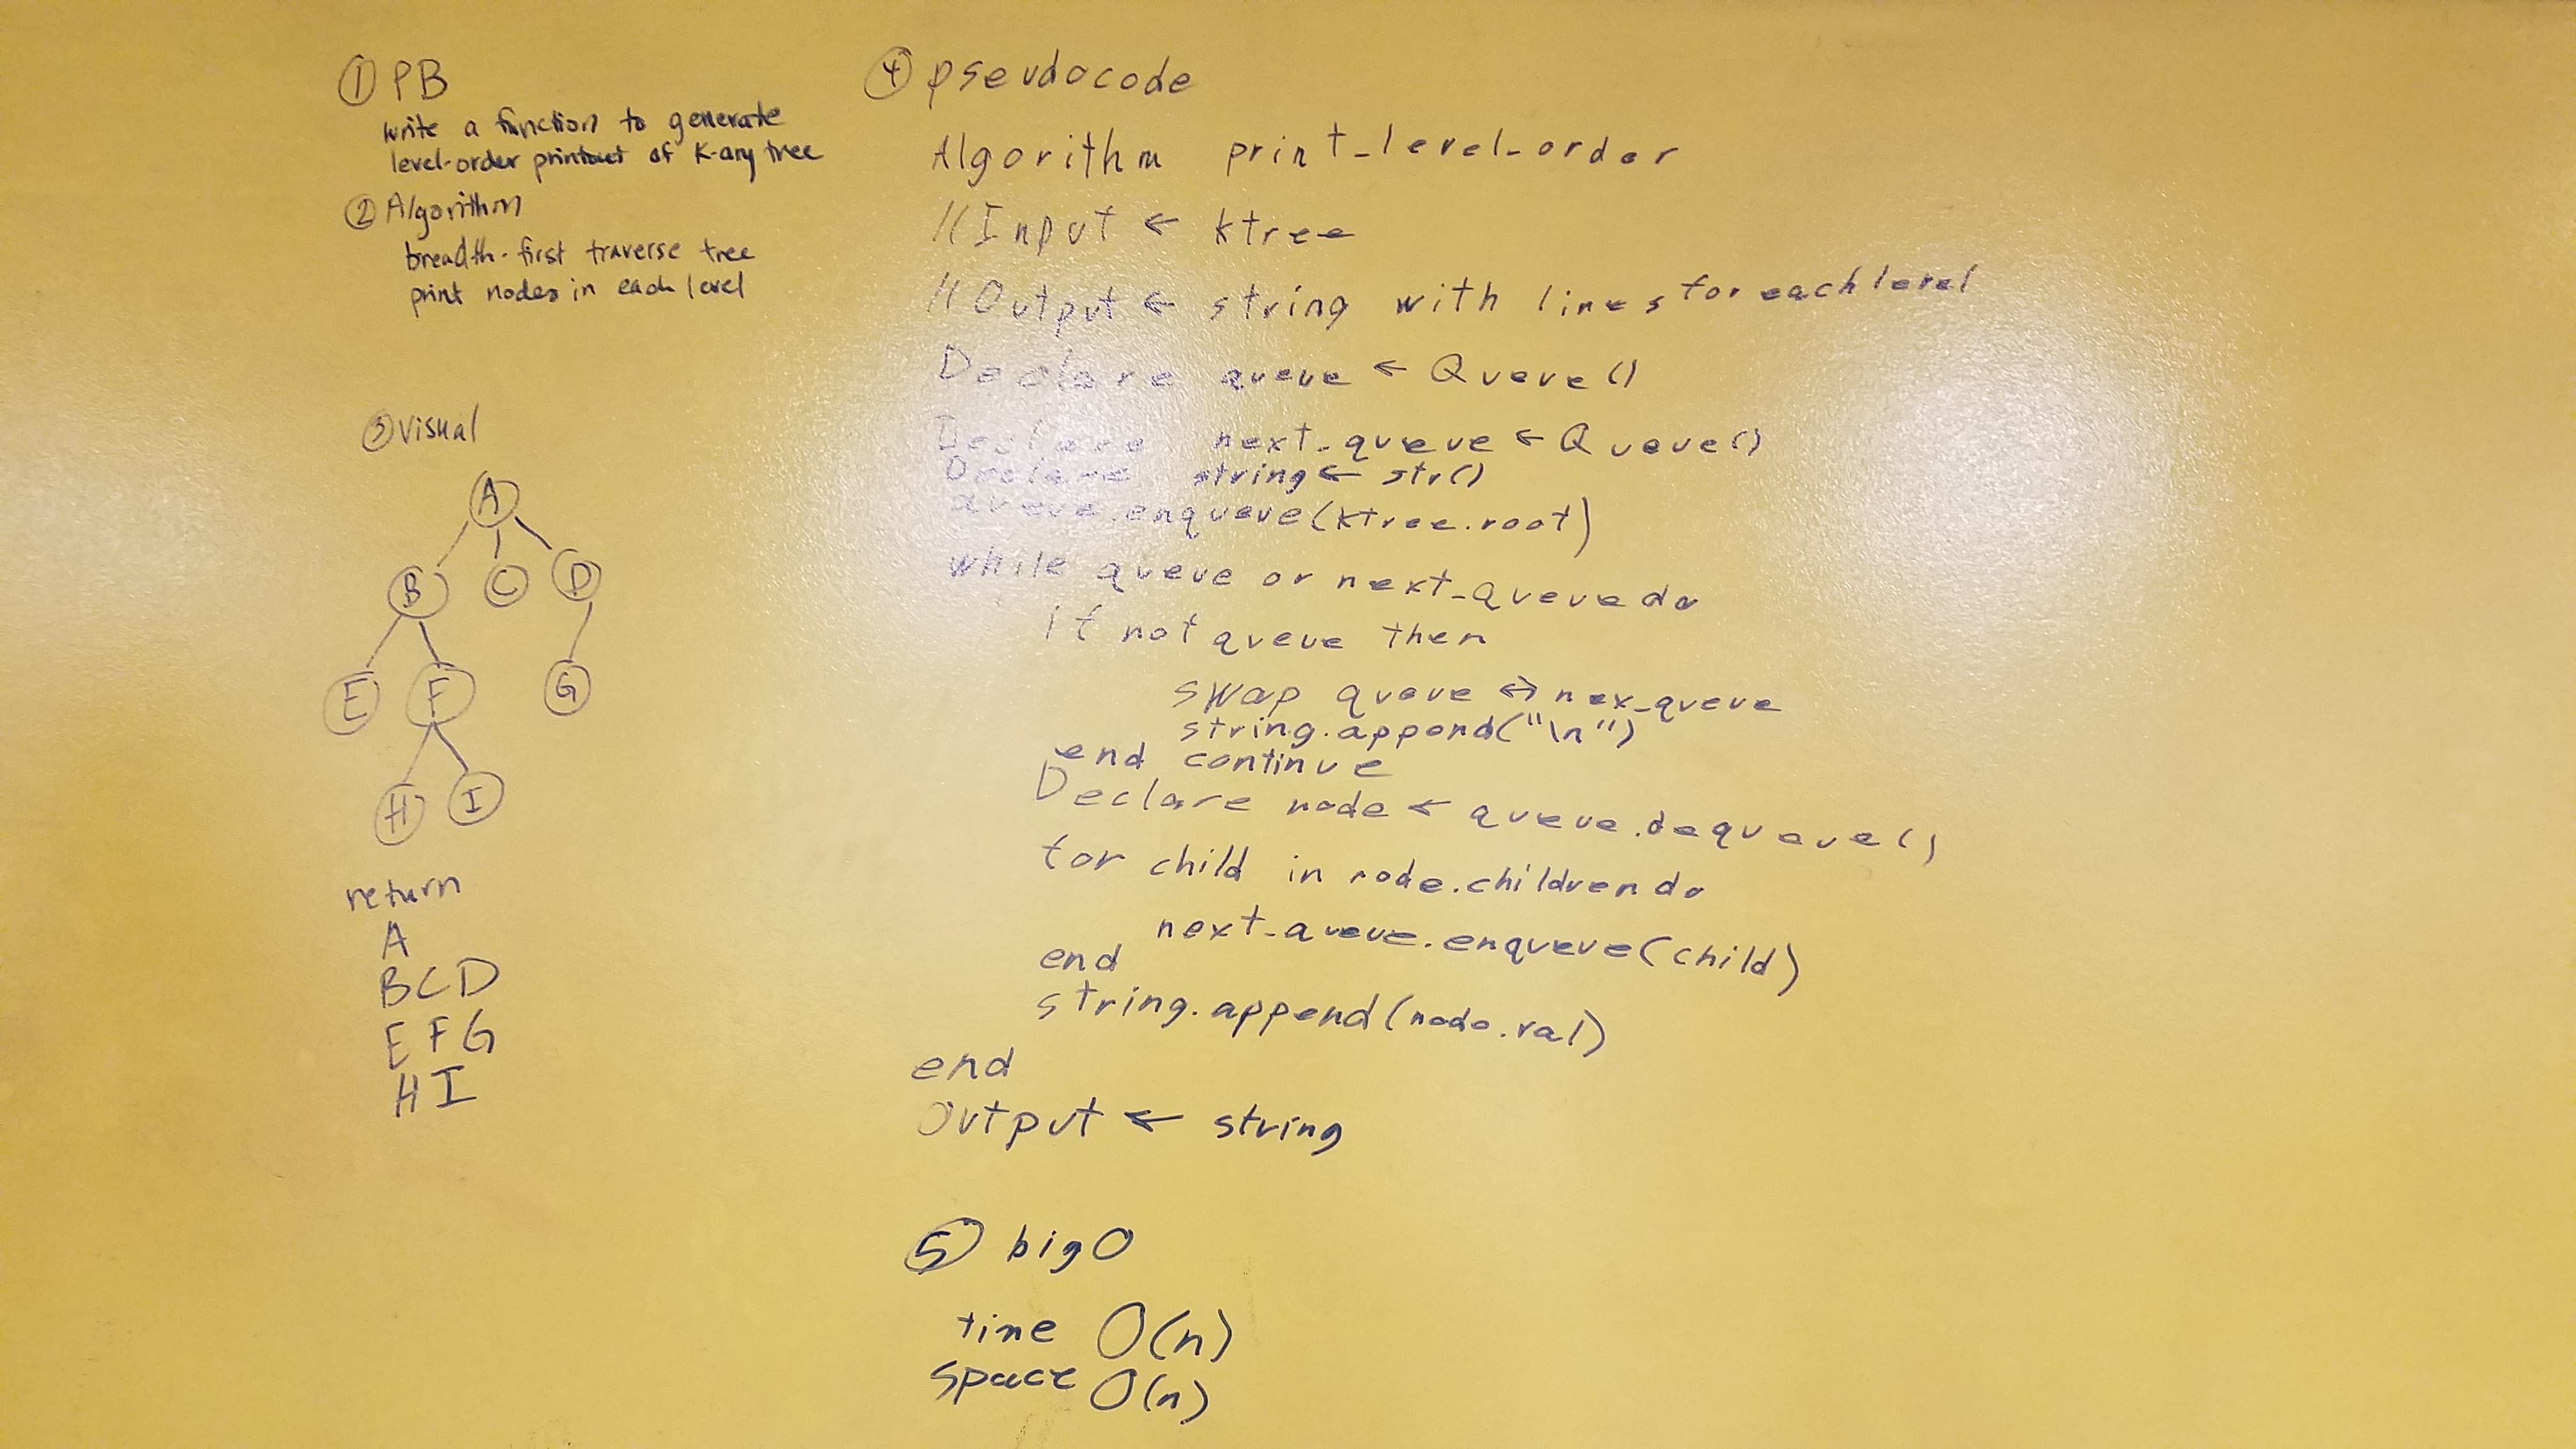 ① PB
write a function to generate
level-order printout of K-ary tree
② Algorithm
breadth-first traverse tree
print nodes in each level
③ Visual
A
B C D
E F G
H I
return
A
BCD
E F G
H I
④ pseudocode
Algorithm print_level_order
// Input ← ktree
// Output ← string with lines for each level
Declare queue ← Queue()
Declare next_queue ← Queue()
Declare string ← str()
queue.enqueue(ktree.root)
while queue or next_queue do
if not queue then
swap queue ↔ nex_queue
string.append("\n")
end continue
Declare node ← queue.dequeue()
for child in node.children do
next_queue.enqueue(child)
end
string.append(node.val)
end
Output ← string
⑤ big O
time O(n)
space O(n)